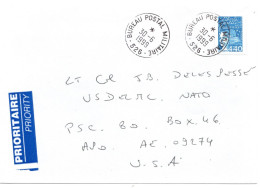 BUREAU POSTAL MILITAIRE
30-6
1999
528
BUREAU POSTAL MILITAIRE
30-6
1999
528
4.40
PRIORITAIRE
PRIORITY
LT CR J.B.
USDELMC, NATO
PSC. 80. BOX. 46
APO AE. 09274
U.S.A